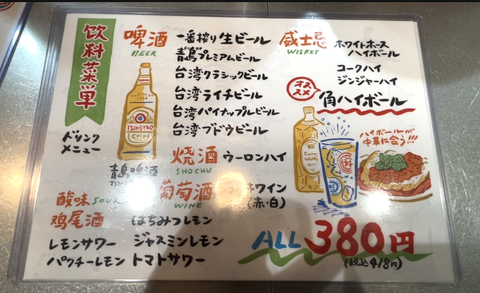 飲料菜単
ドリンク
メニュー
啤酒
BEER
一番搾り生ビール
青島プレミアムビール
台湾クラシックビール
台湾ライチビール
台湾パイナップルビール
台湾ブドウビール
TSINGTAO
青島啤酒
焼酒
SHOCHU
ウーロンハイ
葡萄酒
WINE
ワイン
(赤・白)
酸味
SOUR
鸡尾酒
はちみつレモン
レモンサワー
ジャスミンレモン
パクチーレモン
トマトサワー
威士忌
ホワイトホース
ハイボール
コークハイ
ジンジャーハイ
オススメ
角ハイボール
ハイボールが
中華に合う!!!
ALL 380円
(税込418円)